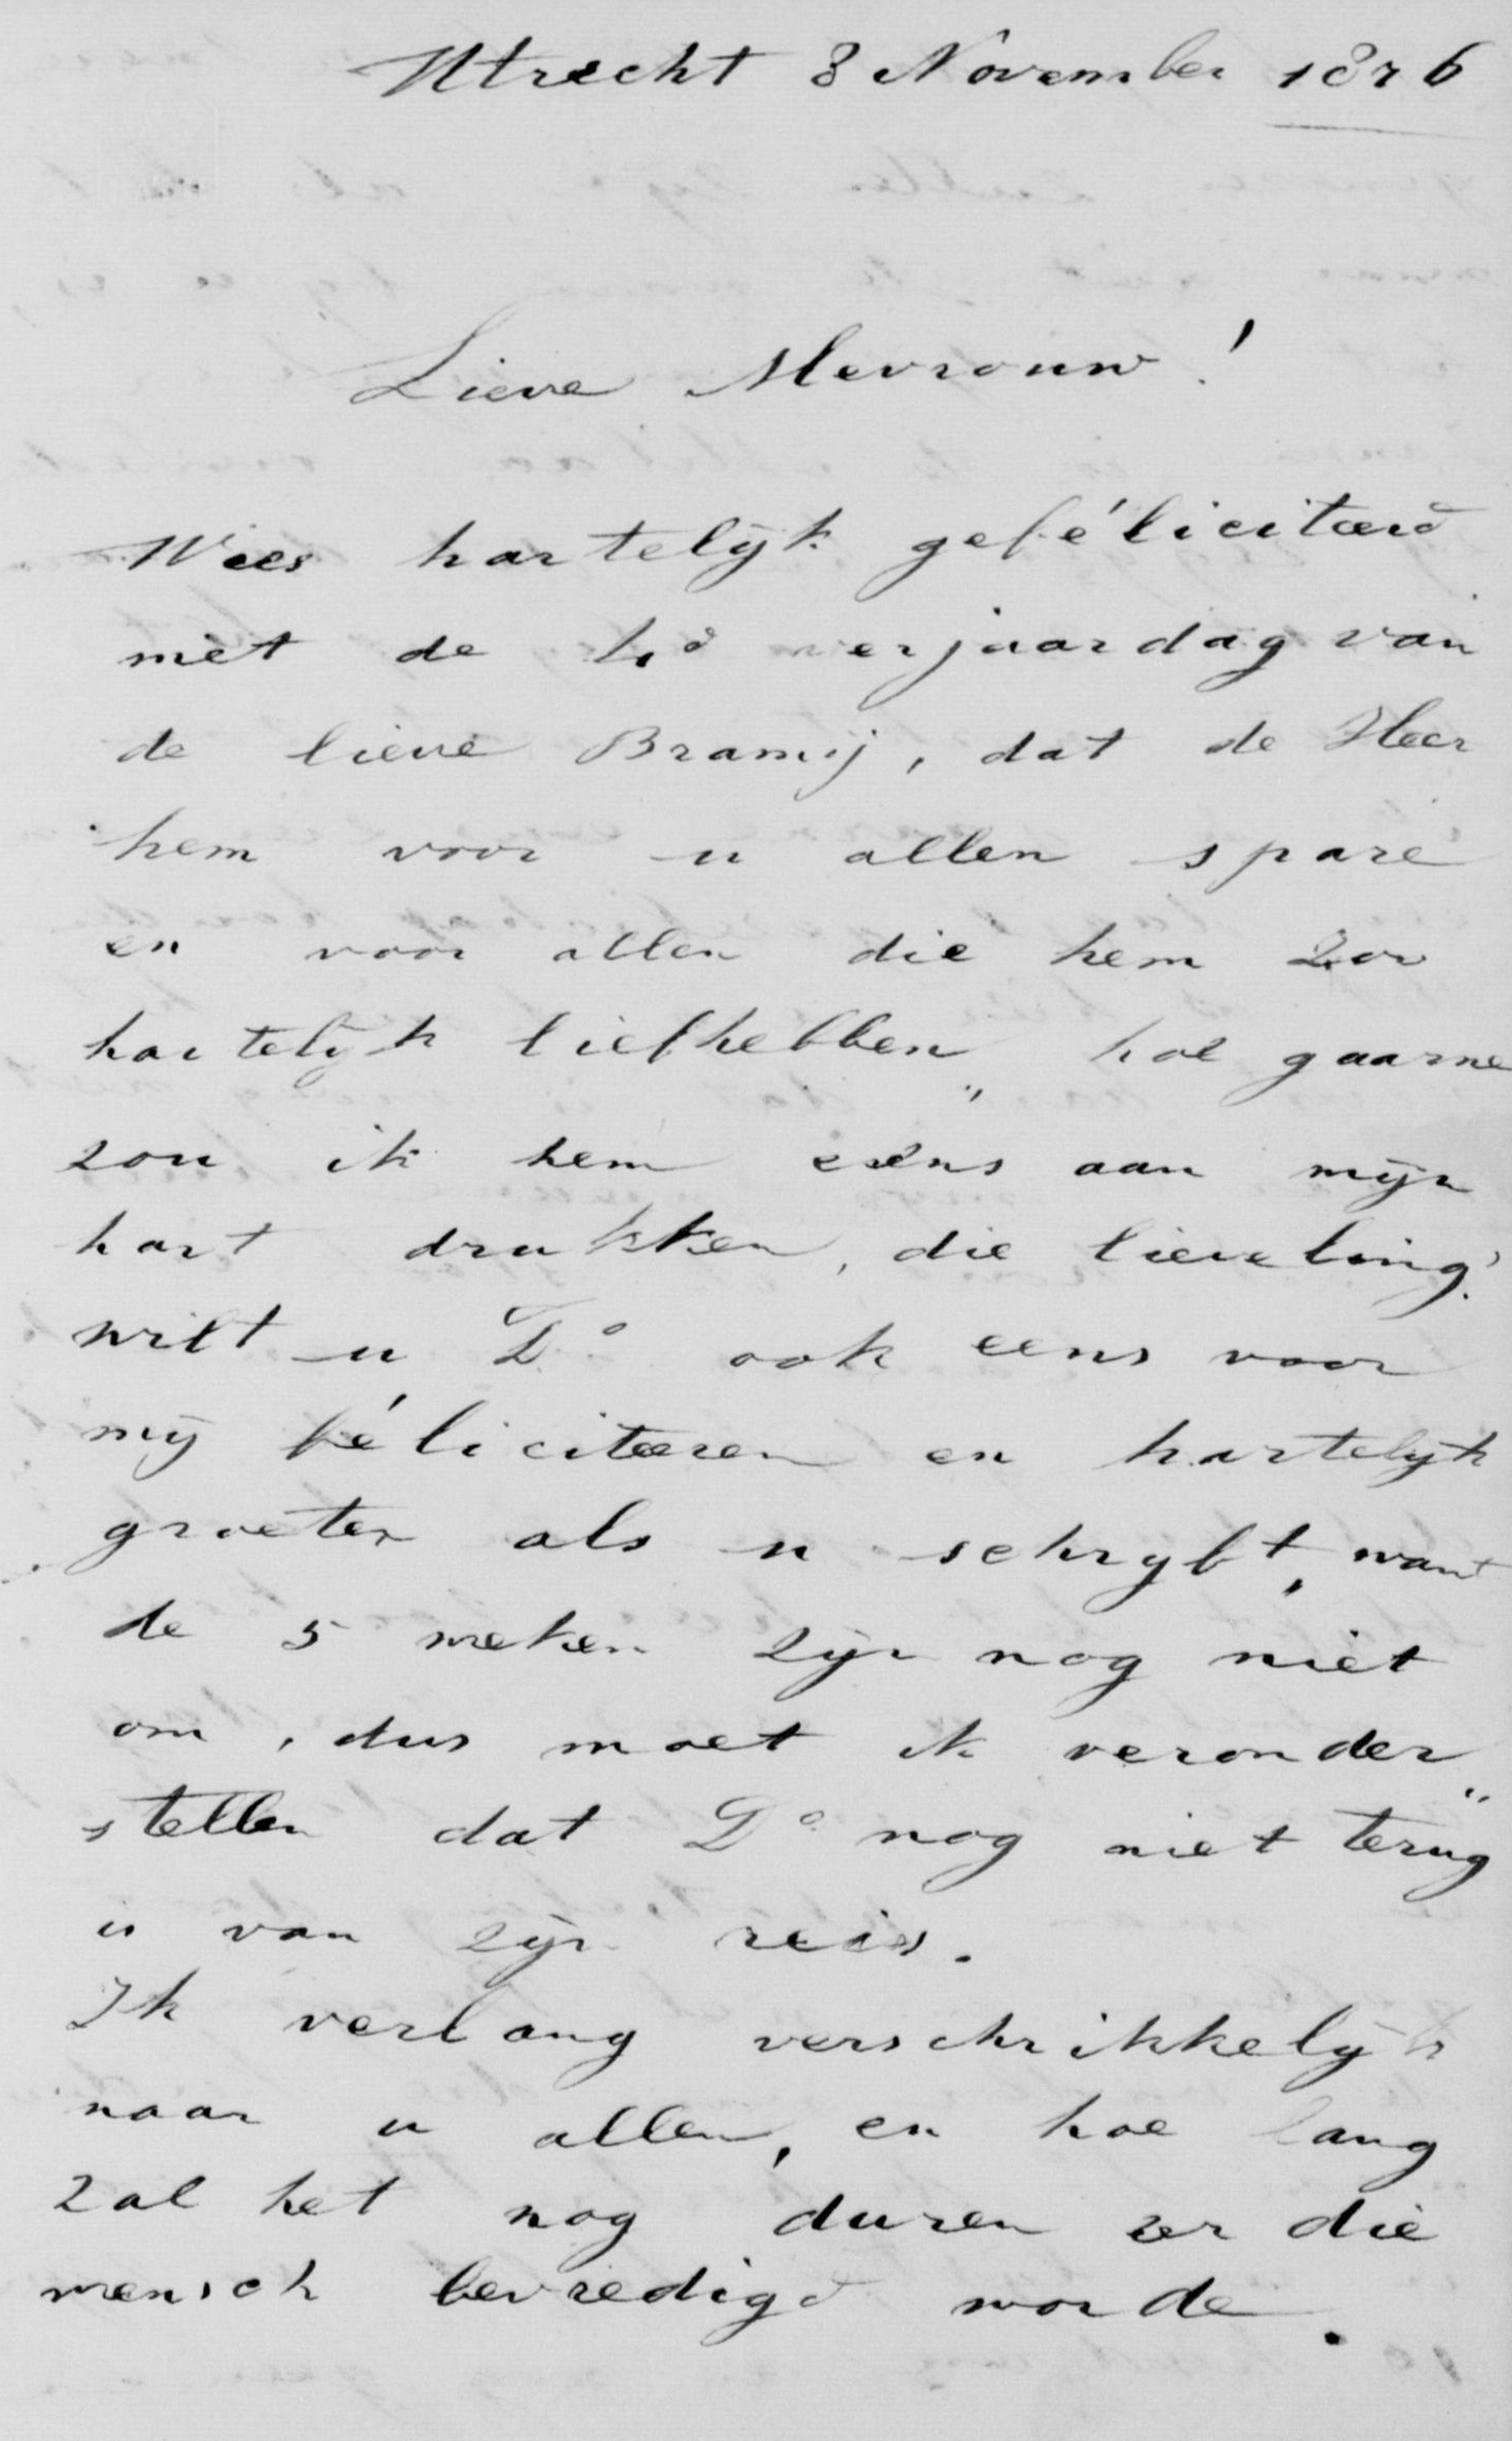 Utrecht 8 November 1876
Lieve Mevrouw!
Wees hartelijk geféliciteerd
met de 4e verjaardag van
de lieve Bramij, dat de Heer
hem voor u allen spare
en voor allen die hem zoo
hartelijk liefhebben, hoe gaarne
zou ik hem eens aan mijn
hart drukken, die lieveling!
wilt u Do ook eens voor
mij féliciteeren en hartelijk
groeten als u schrijft, want
de 5 weken zijn nog niet
om, dus moet ik veronder„
stellen dat Do nog niet terug
is van zijn reis.
Ik verlang verschrikkelijk
naar u allen, en hoe lang
zal het nog duren eer die
wensch bevredigd worde.